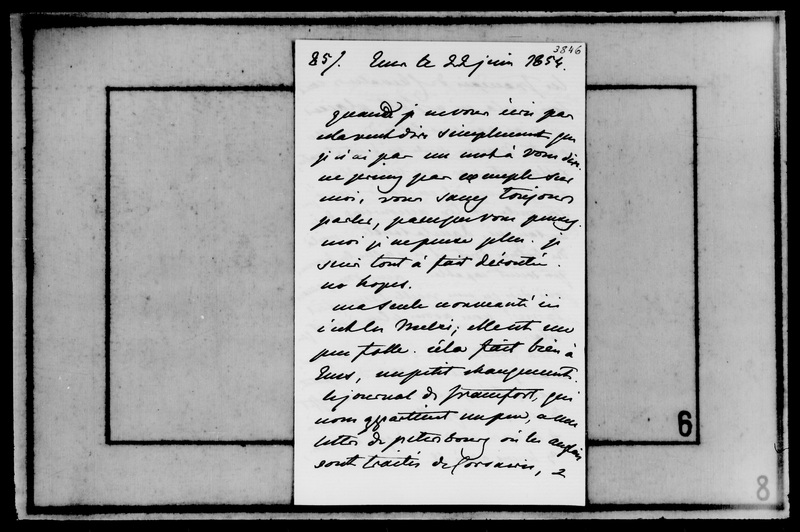 3846
85/. Ems le 22 juin 1854.
quand je ne vous écris pas
cela veut dire simplement que
je n'ai pas un mot à vous dire.
ne prenez pas exemple sur
moi, vous savez toujours
parler, parceque vous pensez.
moi je ne pense plus. je
suis tout à fait déroutée
no hopes.
ma seule nouveauté ici
c'est la elle est un
peu folle. cela fait bien à
Ems, un petit changement.
le journal de francfort, qui
nous appartient un peu, a une
lettre de petersbourg où les anglais
sont traités de Corsaires, 2
6
8